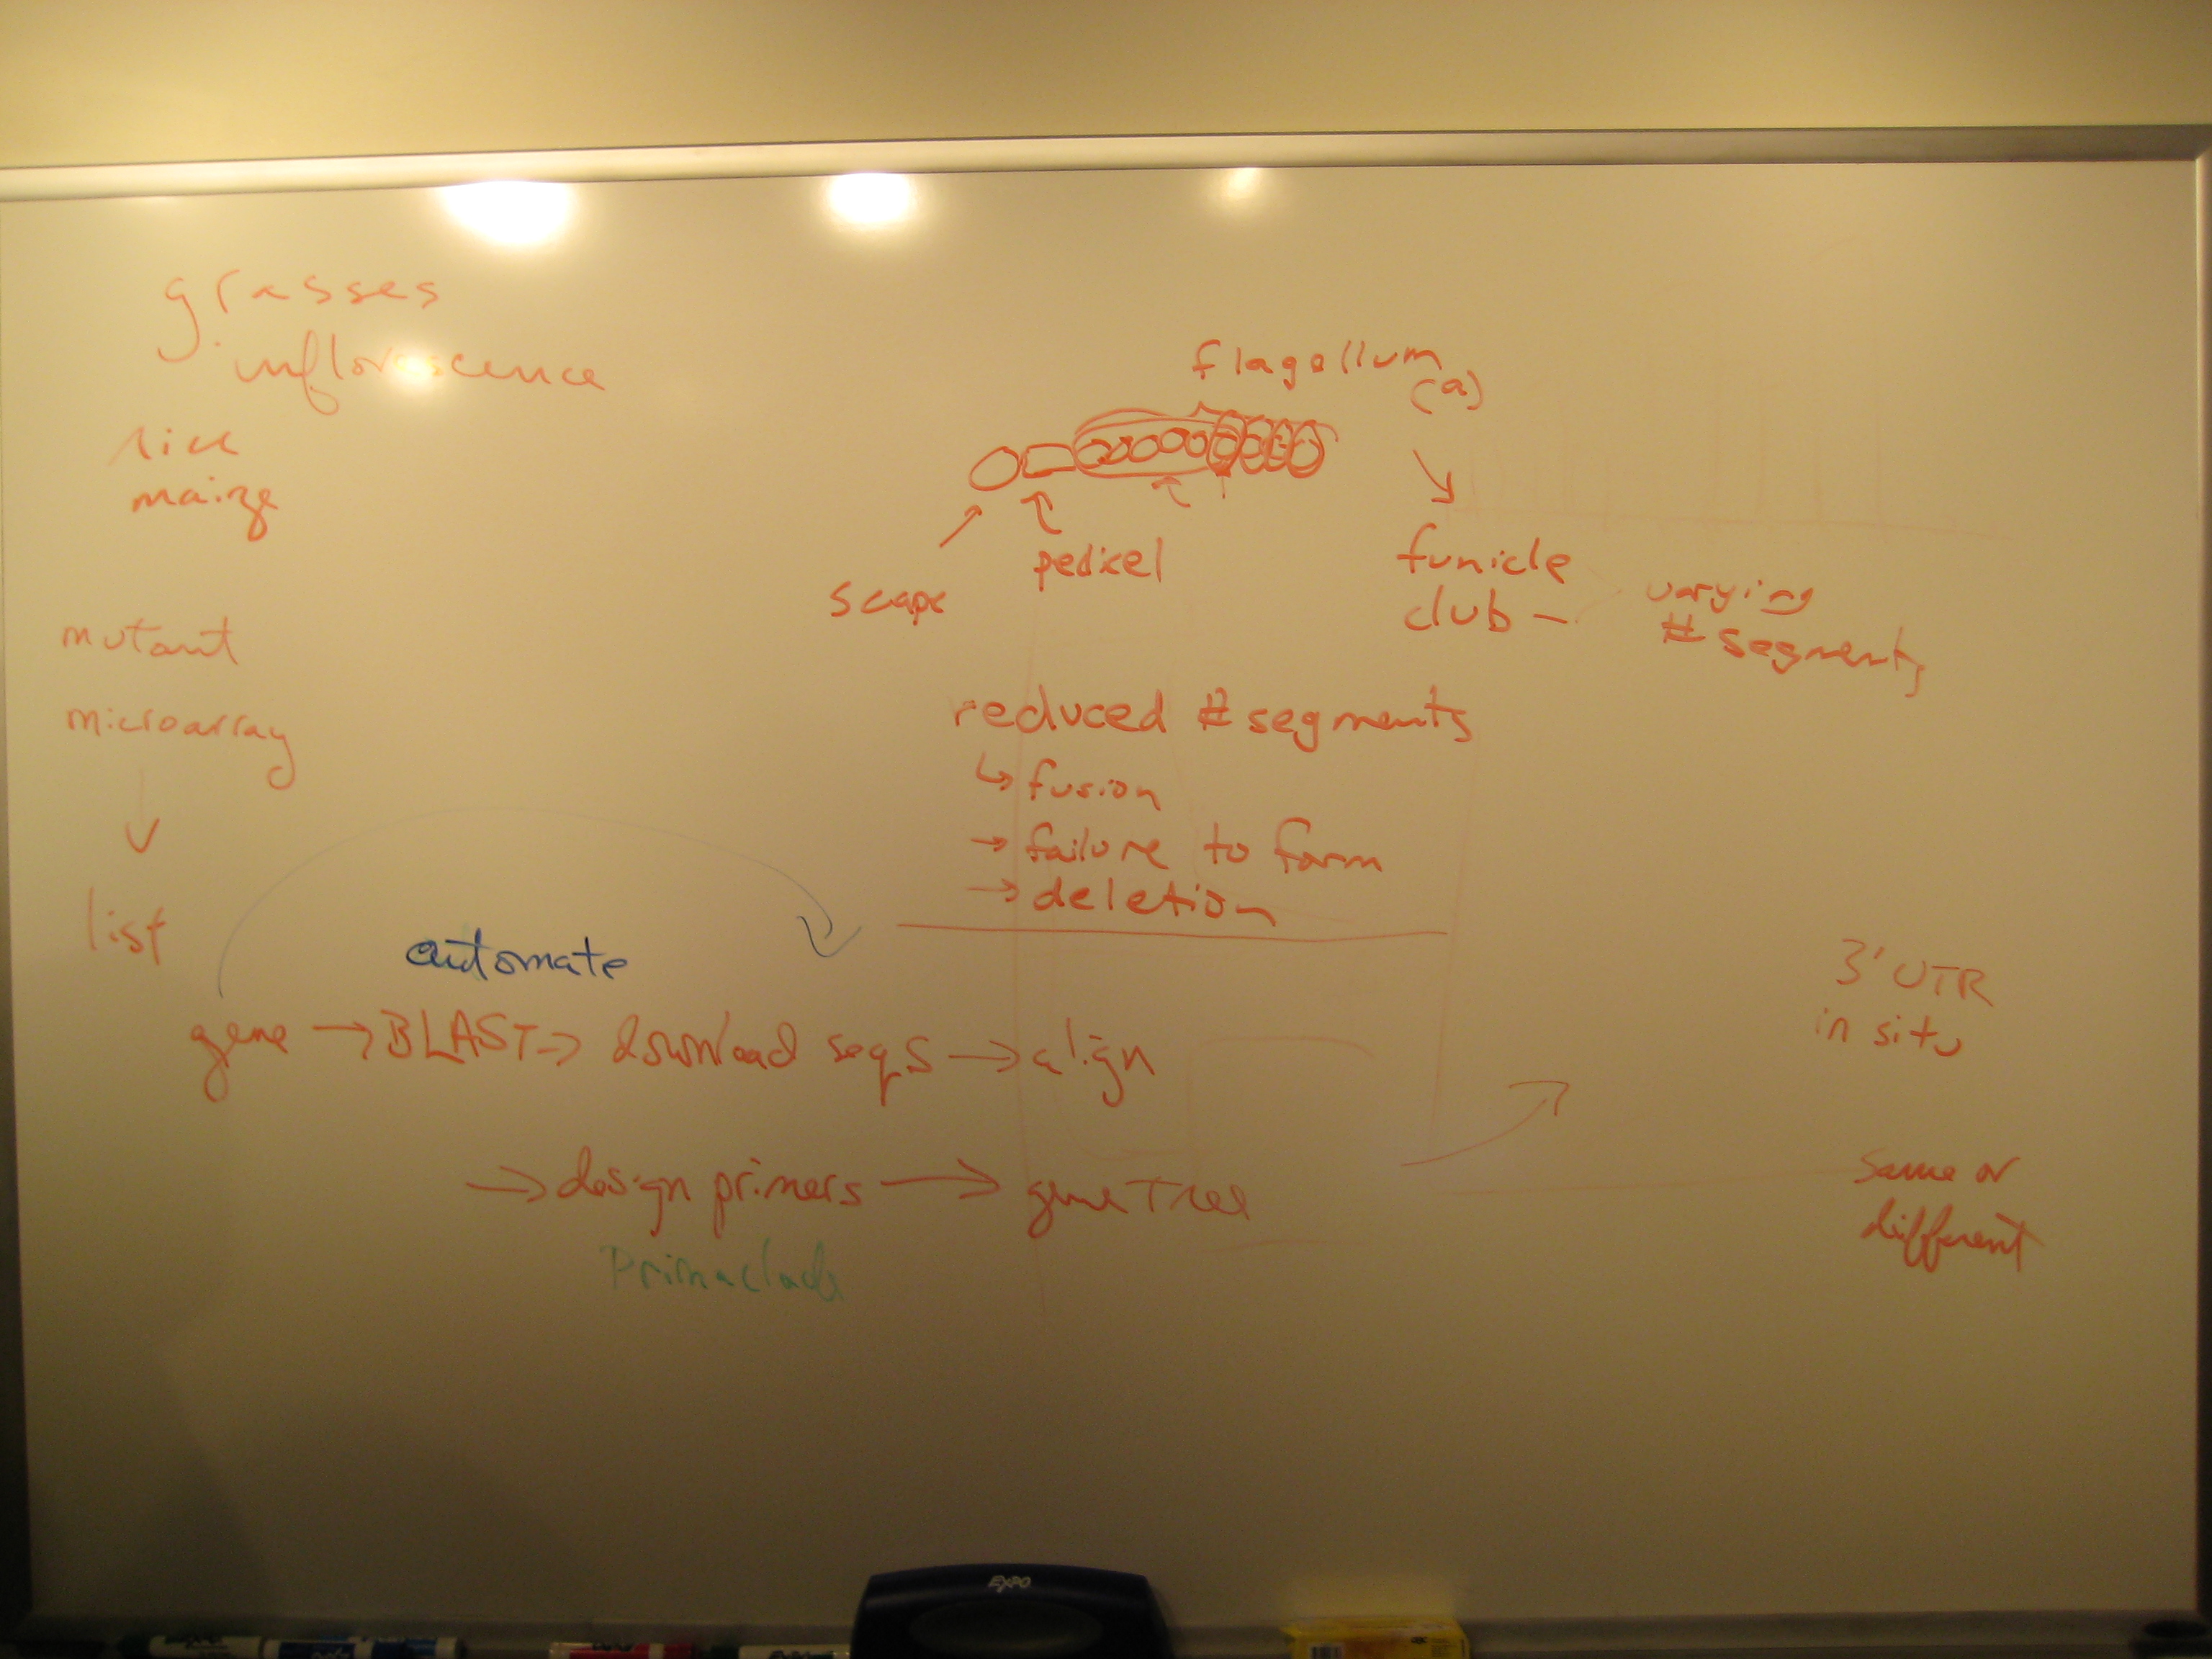 grasses
inflorescence
rice
maize
mutant
microarray
list
flagellum
(a)
scape
pedicel
funicle
club –
varying
# segments
reduced # segments
↳ fusion
→ failure to form
→ deletion
automate
gene → BLAST → download seqs → align
→ design primers → gene Tree
Primaclade
3' UTR
in situ
same or
different
EXPO